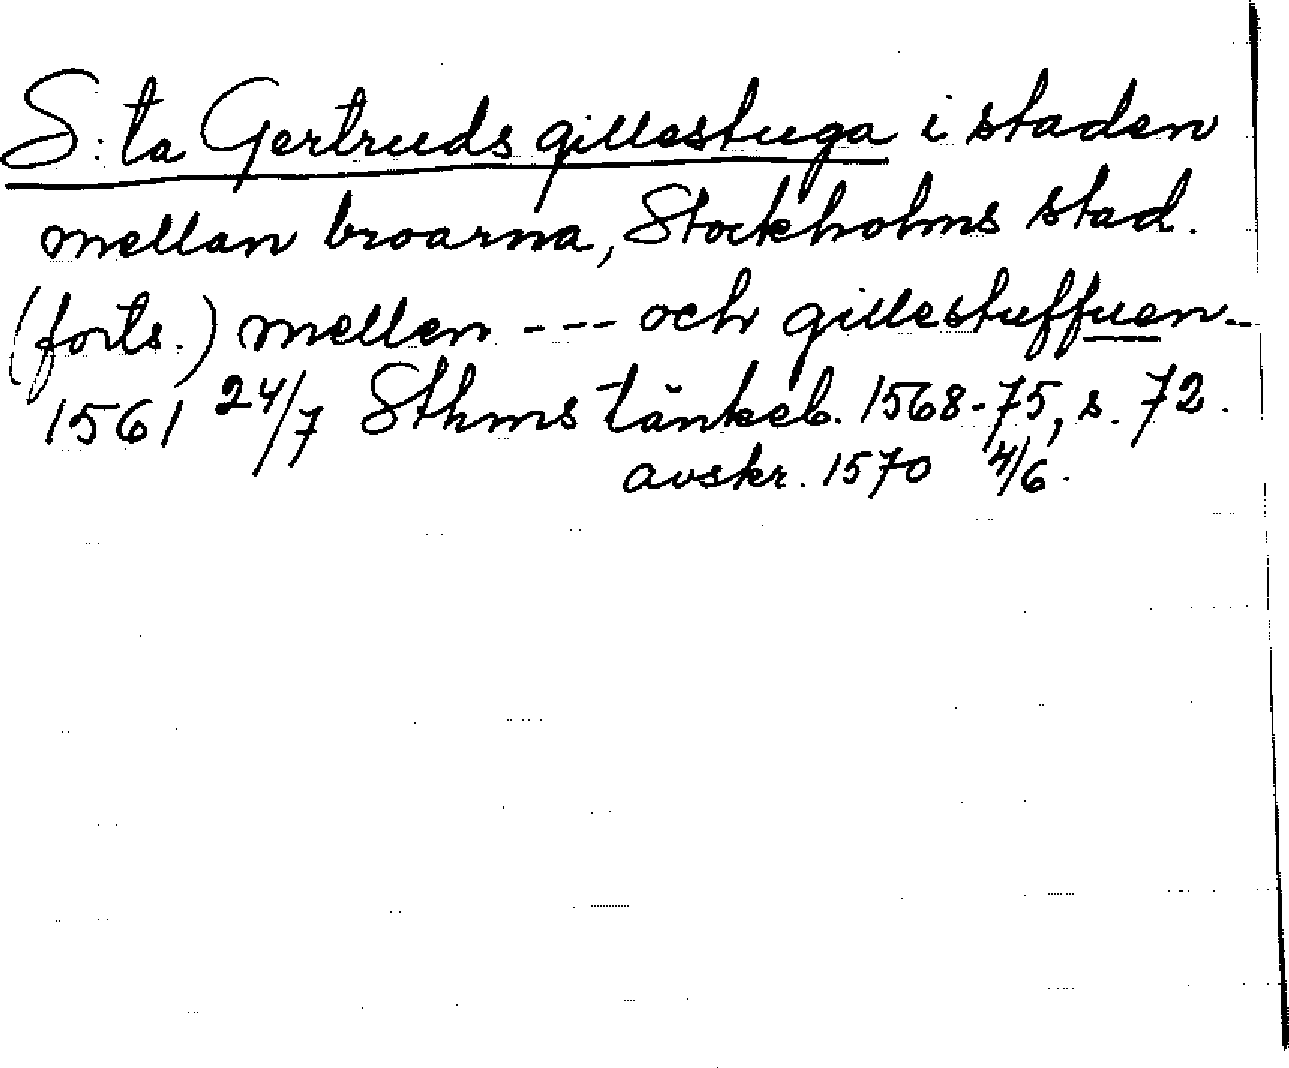 S:ta Gertruds gillestuga i staden
mellan broarna, Stockholms stad.
(forts.) mellen --- och gillestuffuen--
1561 24/7 Sthms tänkeb. 1568-75, s. 72.
avskr. 1570 4/6.